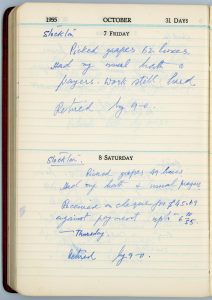 1955 OCTOBER 31 DAYS
7 FRIDAY
Stockton
Picked grapes 62 boxes.
Had my usual bath &
prayers. Work still hard.
Retired by 9-0.
8 SATURDAY
Stockton.
Picked grapes 49 boxes
Had my bath & usual prayers
Received a cheque for $45.69
against payment upto
Thursday.
Retired by 9-0.